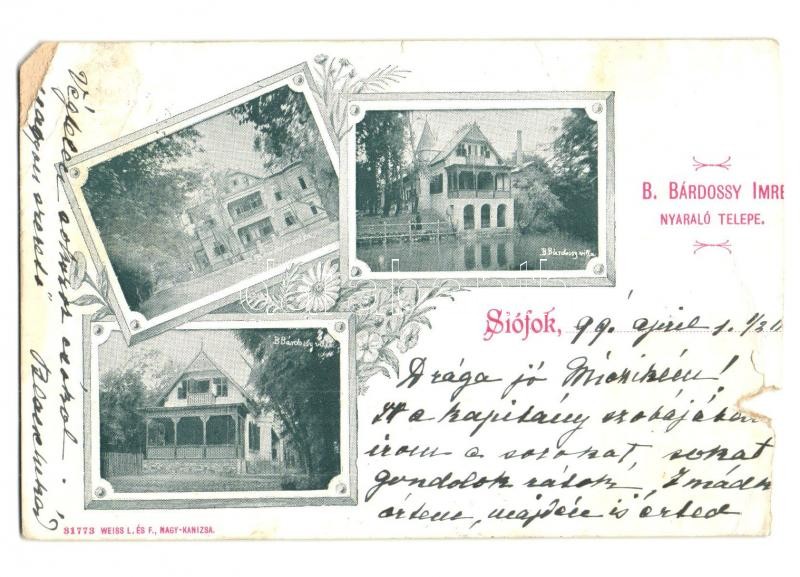 B. BÁRDOSSY IMRE
NYARALÓ TELEPE.
B Bárdossy villa
B Bárdossy villa
Siófok, 99. april 1. 1/2 11
Drága jó Miczikém!
Itt a kapitány szobájában
irom a sorokat, sokat
gondolok rátok, Imádk
értem, majdén is érted
Végtelen sokszor csókol
nagyon szerető
31773 WEISS L. ÉS F., NAGY-KANIZSA.